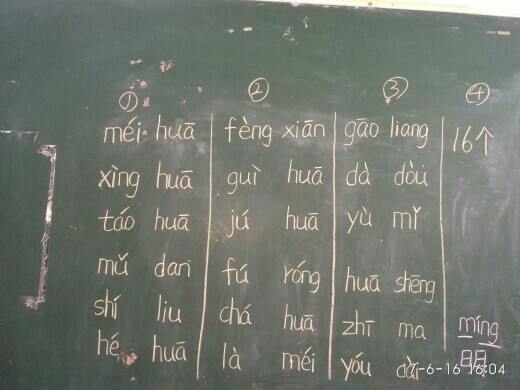 ① ② ③ ④
méi huā fèng xiān gāo liang 16个
xìng huā guì huā dà dòu
táo huā jú huā yù mǐ
mǔ dan fú róng huā shēng
shí liu chá huā zhī ma míng
hé huā là méi yóu cài 明
7-6-16 16:04